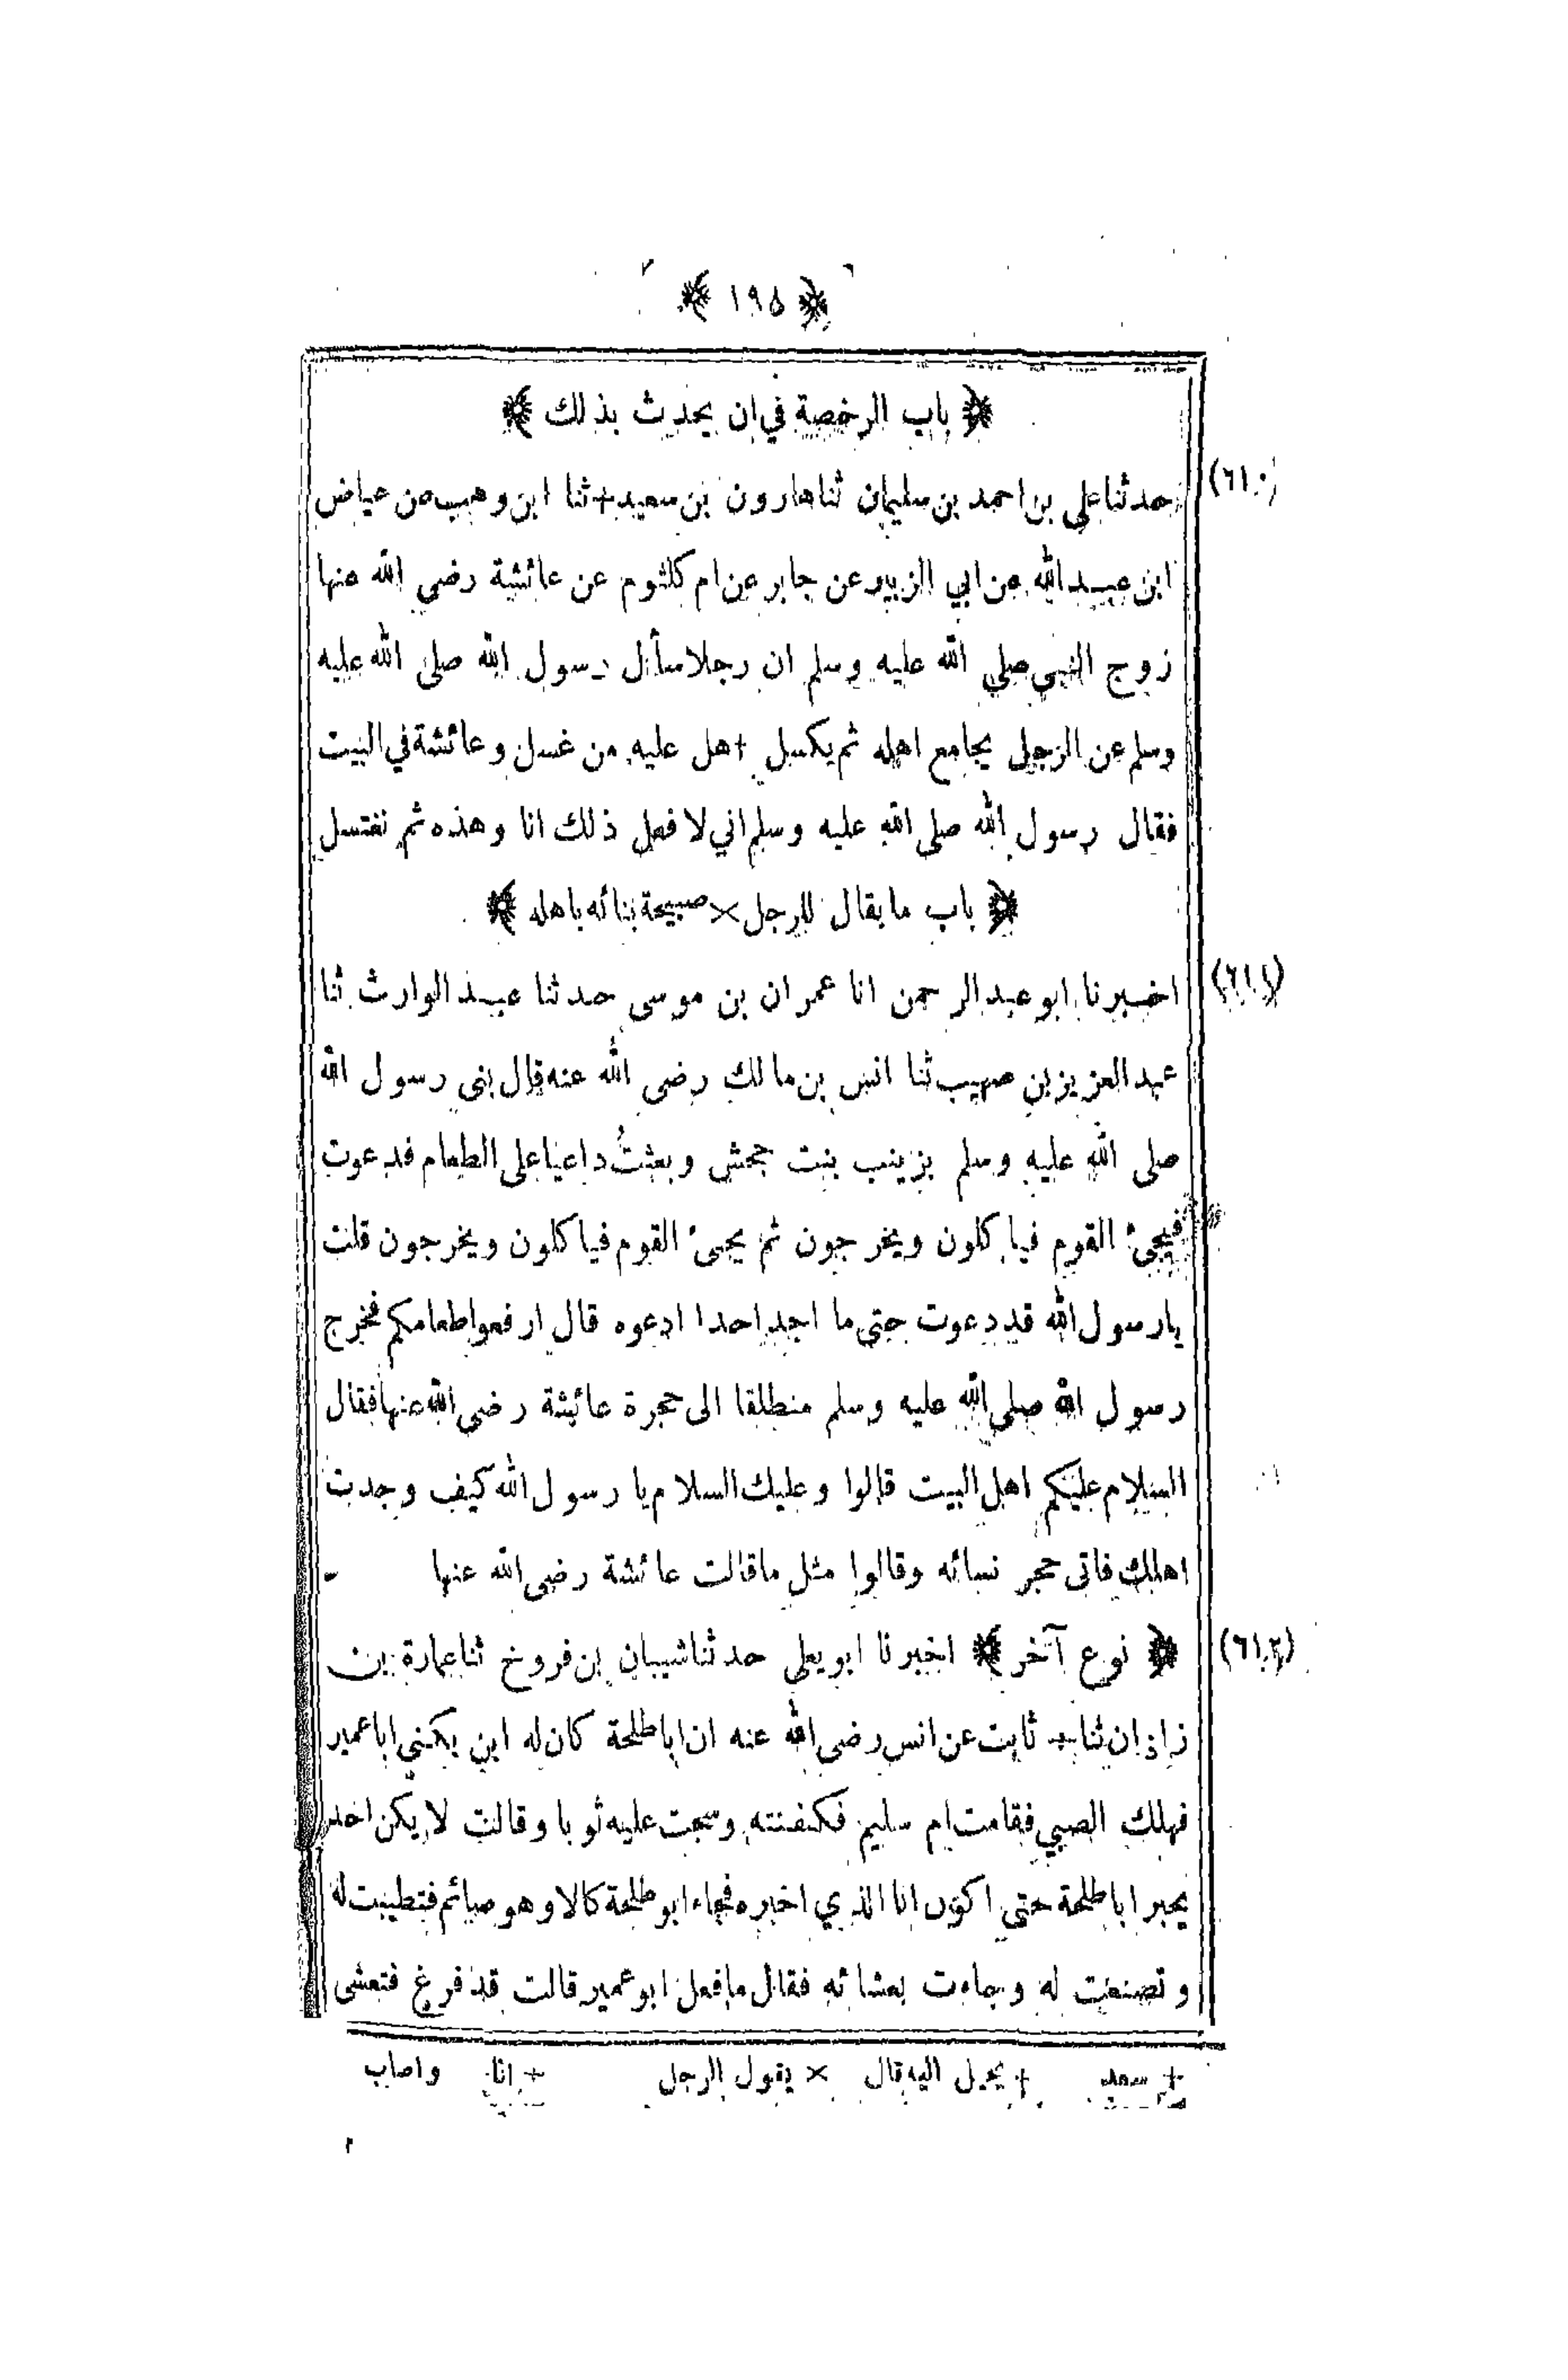 ﴿ ١٩٥ ﴾
﴿ باب الرخصة في ان يحدث بذلك ﴾
(٦١٠) حدثنا علي بن احمد بن سليمان ثنا هارون بن سعيد + ثنا ابن وهب عن عياض
ابن عبدالله عن ابي الزبير عن جابر عن ام كلثوم عن عائشة رضى الله عنها
زوج النبي صلى الله عليه وسلم ان رجلا سأل رسول الله صلى الله عليه
وسلم عن الرجل يجامع اهله ثم يكسل + هل عليه من غسل وعائشة في البيت
فقال رسول الله صلى الله عليه وسلم اني لافعل ذلك انا وهذه ثم نغتسل
﴿ باب ما يقال للرجل × صبيحة بنائه باهله ﴾
(٦١١) اخبرنا ابو عبد الرحمن انا عمران بن موسى حدثنا عبد الوارث ثنا
عبد العزيز بن صهيب ثنا انس بن مالك رضى الله عنه قال بنى رسول الله
صلى الله عليه وسلم بزينب بنت جحش وبعثتُ داعيا على الطعام فدعوت
فيجئ القوم فياكلون ويخرجون ثم يجئ القوم فياكلون ويخرجون قلت
يا رسول الله قد دعوت حتى ما اجد احدا ادعوه قال ارفعوا طعامكم فخرج
رسول الله صلى الله عليه وسلم منطلقا الى حجرة عائشة رضى الله عنها فقال
السلام عليكم اهل البيت قالوا وعليك السلام يا رسول الله كيف وجدت
اهلك فاتى حجر نسائه وقالوا مثل ما قالت عائشة رضى الله عنها
(٦١٢) ﴿ نوع آخر ﴾ اخبرنا ابو يعلى حدثنا شيبان بن فروخ ثنا عمارة بن
زاذان ثنا + ثابت عن انس رضى الله عنه ان ابا طلحة كان له ابن يكنى ابا عمير
فهلك الصبي فقامت ام سليم فكفنته وسجت عليه ثوبا وقالت لا يكن احد
يخبر ابا طلحة حتى اكون انا الذي اخبره فجاء ابو طلحة كالا وهو صائم فتطيبت له
وتصنعت له وجاءت بعشائه فقال ما فعل ابو عمير قالت قد فرغ فتعشى
+ سعد + يحيل اليه قال × يقول الرجل + انا واصاب